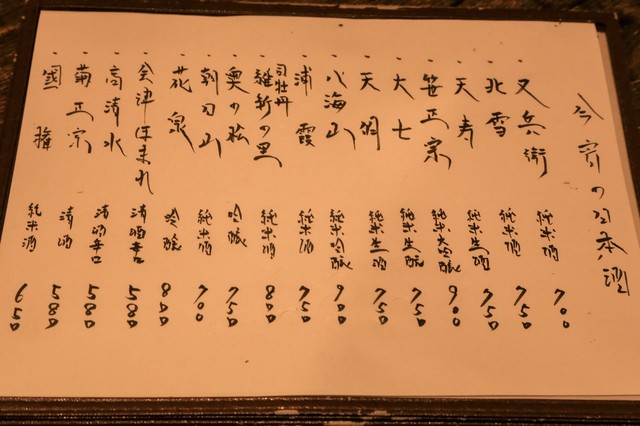 今宵の日本酒
・又兵衛 純米酒 700
・北雪 純米酒 750
・天寿 純米生酒 750
・笹正宗 純米大吟醸 900
・大七 純米生酛 750
・天明 純米生酒 750
・八海山 純米吟醸 900
・浦霞 純米酒 750
・司牡丹 維新の里 純米酒 800
・奥の松 吟醸 750
・朝日山 純米酒 700
・花泉 吟醸 800
・会津ほまれ 清酒辛口 580
・高清水 清酒辛口 580
・菊正宗 清酒 580
・國権 純米酒 650